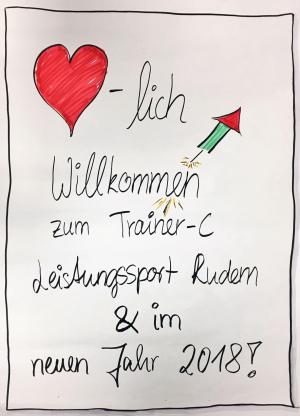 -lich
Willkommen
zum Trainer-C
Leistungssport Rudern
& im
neuen Jahr 2018!